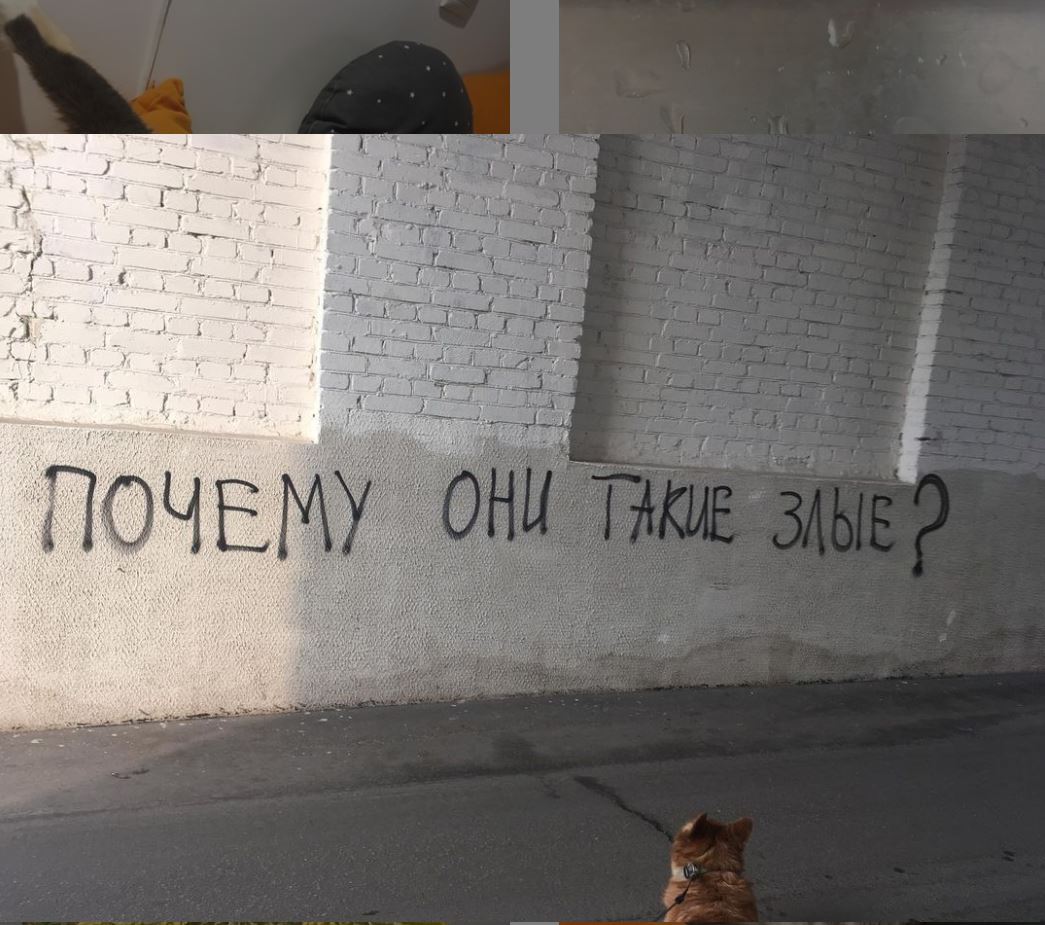 ПОЧЕМУ ОНИ ТАКИЕ ЗЛЫЕ?